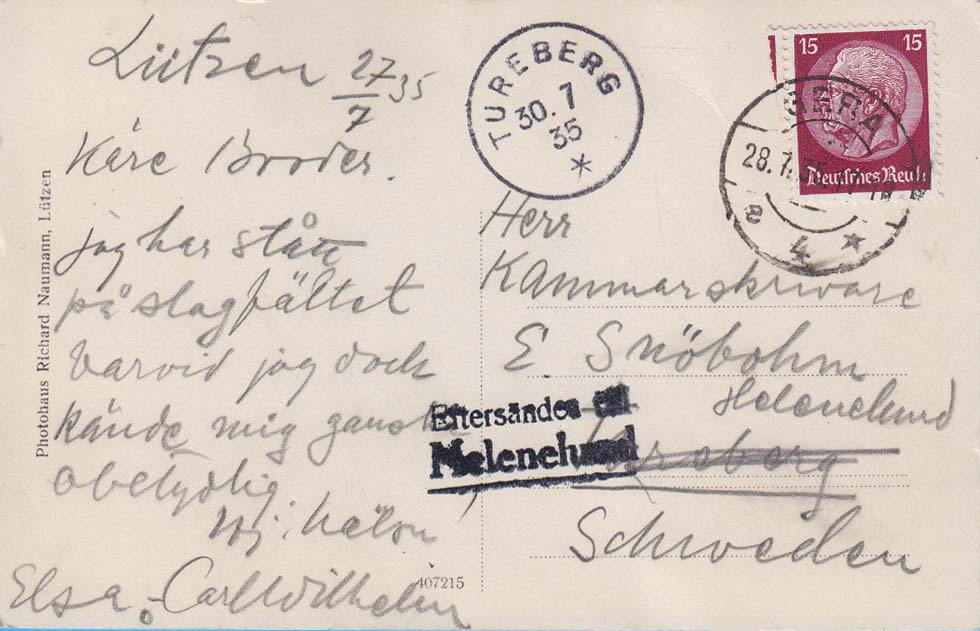 Lützen 27/7 35
Käre Broder.
jag har stått
på slagfältet
varvid jag dock
kände mig ganska
obetydlig.
hälsn
Elsa o. Carl Wilhelm
Photohaus Richard Naumann, Lützen
407215
TUREBERG
30. 7
35
*
15 15
Deutsches Reich
GERA
28.7.35
4 *
a
Herr
Kammarskrivare
E. Snöbohm
Helenelund
Tureberg
Schweden
Eftersändes till
Helenelund